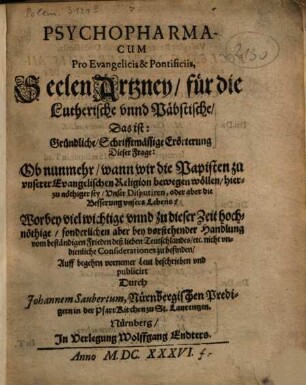 Polem. 3120
PSYCHOPHARMA-
CUM
Pro Evangelicis & Pontificiis,
Seelen Artzney / für die
Lutherische vnnd Päbstische /
Das ist:
Gründliche / Schrifftmässige Erörterung
Dieser Frage:
Ob nunmehr / wann wir die Papisten zu
vnserer Evangelischen Religion bewegen wöllen / hier-
zu nöthiger sey / Vnser Disputiren, oder aber die
Besserung vnsers Lebens?
Worbey viel wichtige vnnd zu dieser Zeit hoch-
nöthige / sonderlichen aber bey vorstehender Handlung
vom beständigen Frieden deß lieben Teutschlandes / etc. nicht vn-
dienliche Considerationes zu befinden /
Auff begehrn vornemer Leut beschrieben vnd
publicirt
Durch
Johannem Saubertum, Nürnbergischen Predi-
gern in der Pfarr Kirchen zu St. Laurentzen.
Nürnberg /
In Verlegung Wolffgang Endters.
Anno M. DC. XXXVI.